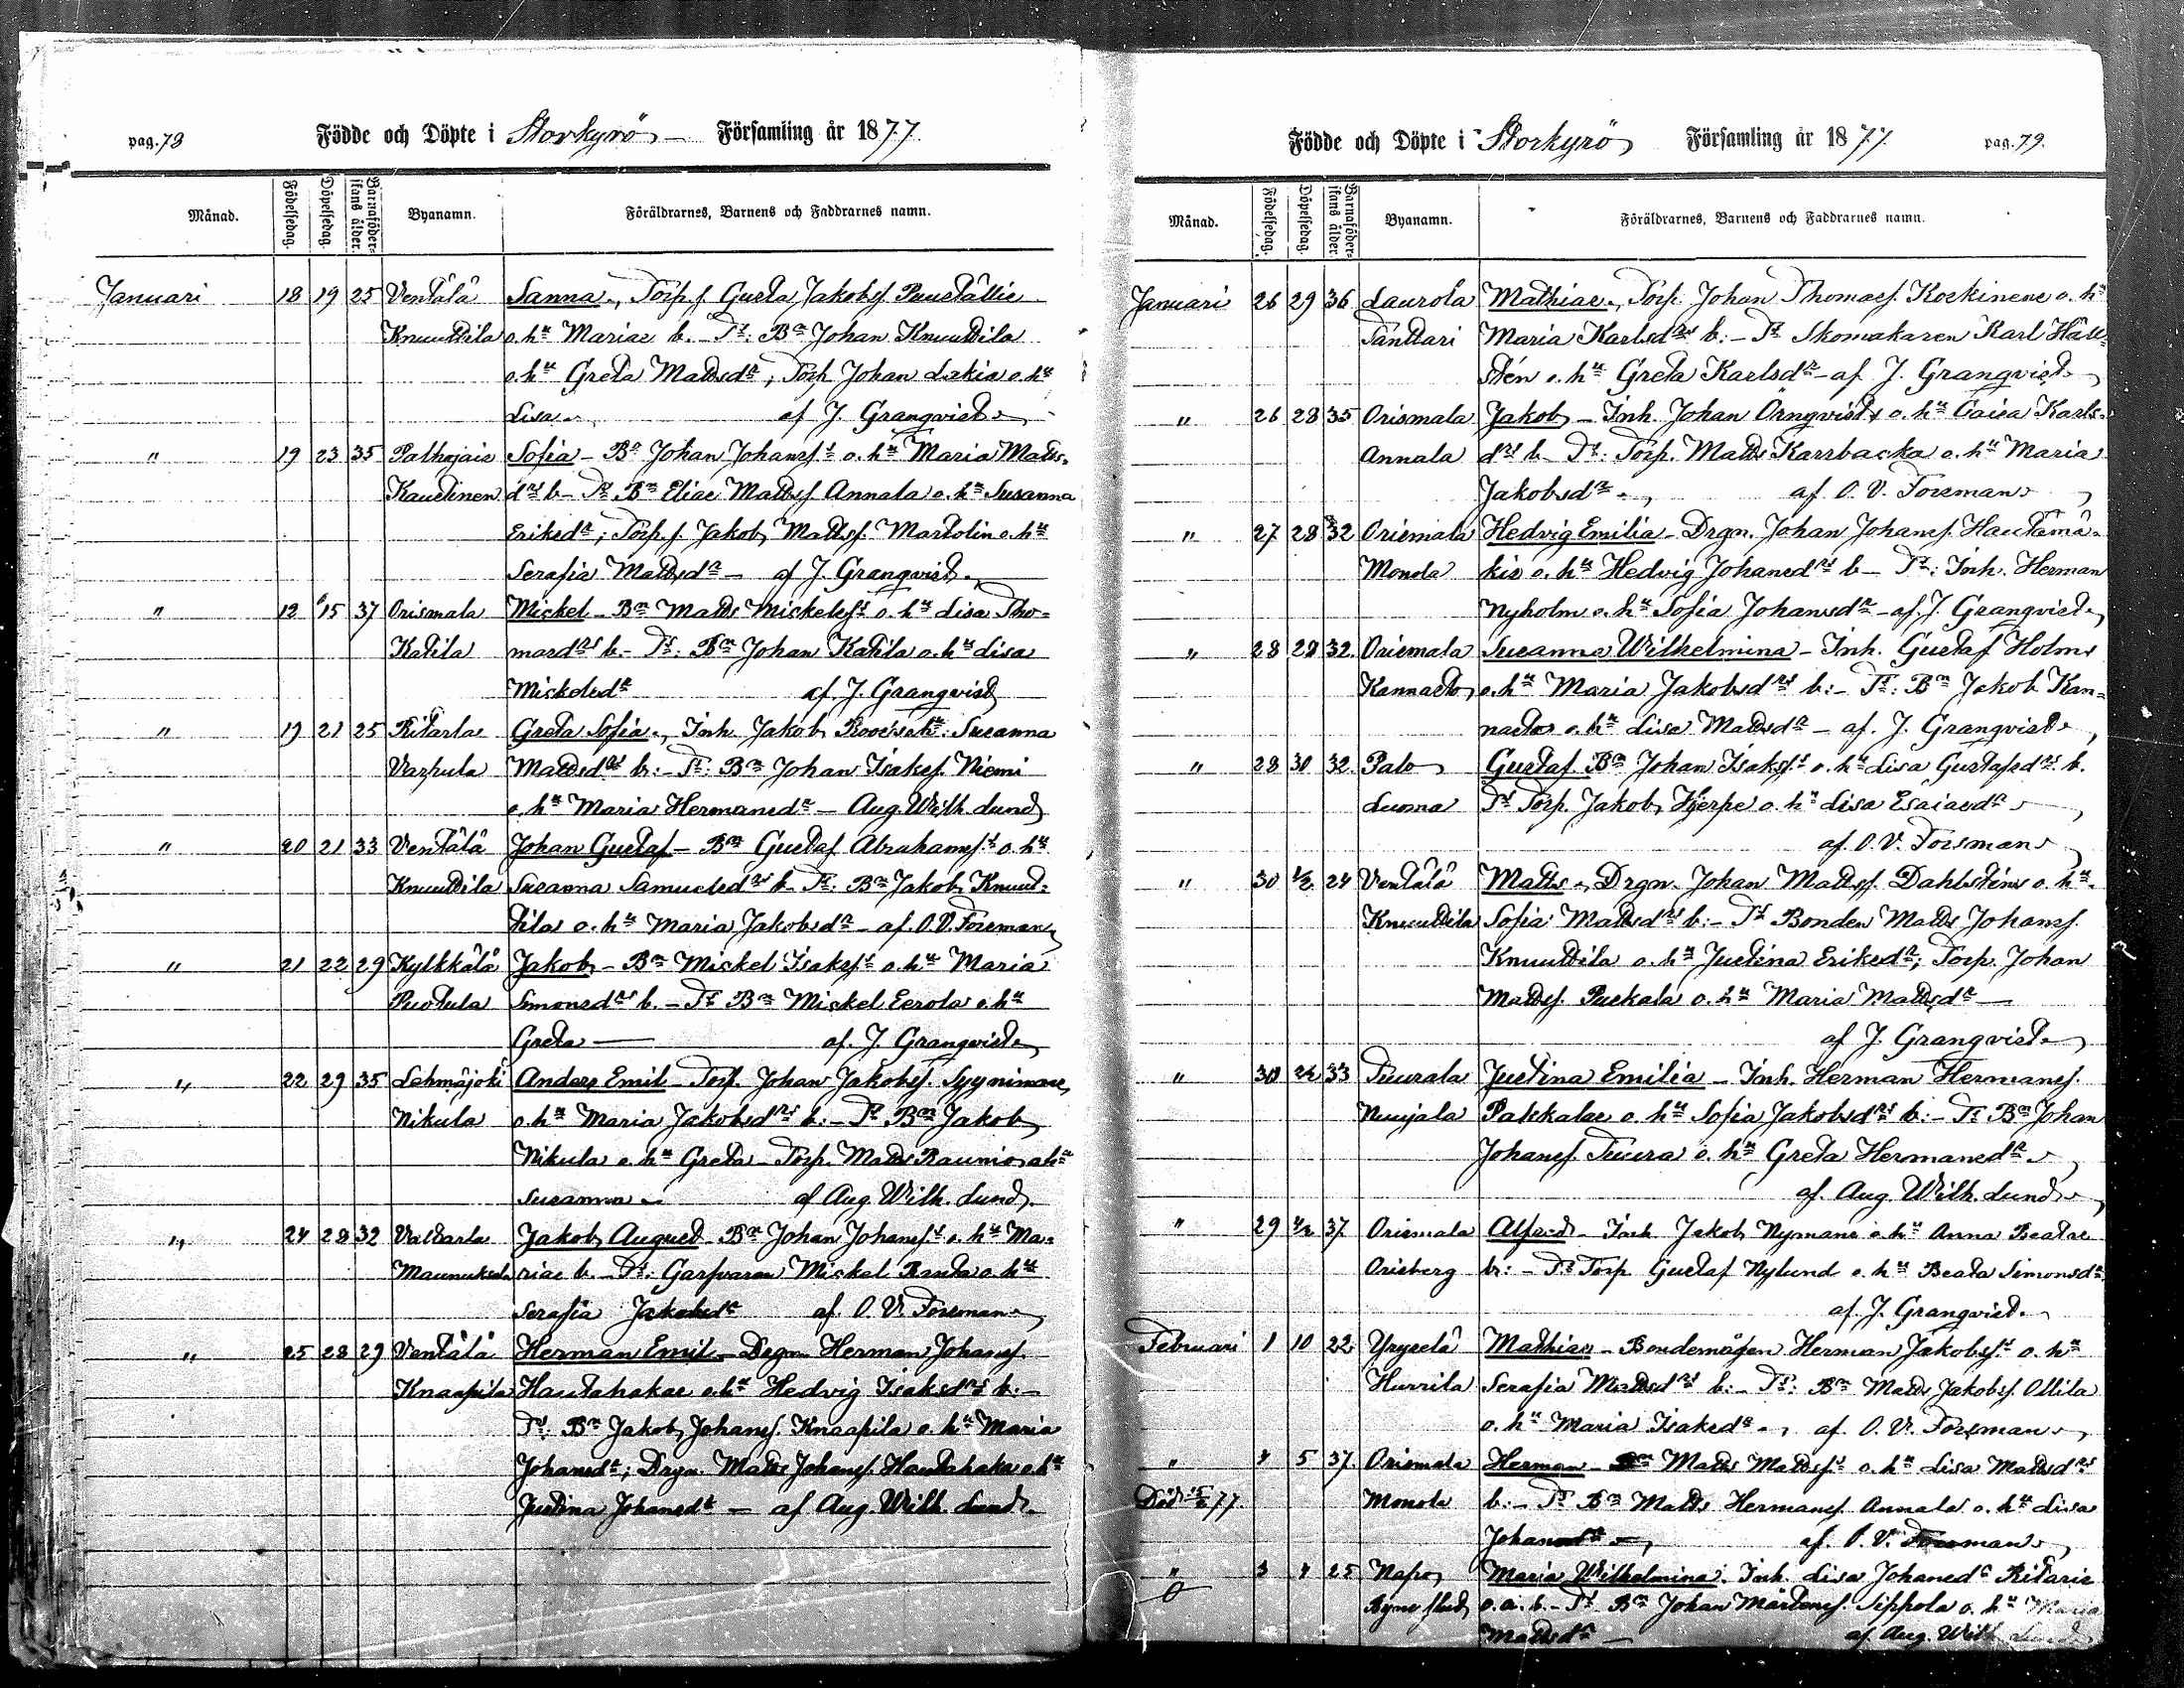 pag. 78
Födde och Döpte i Storkyrö Församling år 1877.
Månad. Födelsedag. Döpelsedag. Barnaföderskans ålder. Byanamn. Föräldrarnes, Barnens och Faddrarnes namn.
Januari 18 19 25 Ventälä Sanna, Torp. s. Gusta Jakobss.
Knuuttila o. hu Marias b. – Ts: Bn Johan Knuuttila
o. hu Greta Mattsdr, Torp. Johan Lakia o. hu
Lisa af J. Granqvist
" 19 23 35 Palhojais Sofia – Bn Johan Johanss o. hu Maria Matts-
Kaudinen drs b – Ts Bn Elias Mattss. Annala o. hu Susanna
Eriksdr; Torp. s. Jakob Mattss. Martolin o. hu
Serafia Mattsdr – af J. Granqvist
" 12 15 37 Orismala Mickel – Bn Matts Mickelss o. hu Lisa Tho-
Katila masdrs b. – Ts: Bn Johan Katila o. hu Lisa
Mickelsdr af J. Granqvist
" 19 21 25 Ritarla Greta Sofia, Inh. Jakob Susanna
Varpula Mattsdrs b: – Ts: Bn Johan Isakss. Niemi
o. hu Maria Hermansdr – Aug. Wilh. Lund
" 20 21 33 Ventälä Johan Gustaf – Bn Gustaf Abrahamss o. hu
Knuuttila Susanna Samuelsdrs b – Ts: Bn Jakob Knuut-
tila o. hu Maria Jakobsdr – af. O. V. Forsman
" 21 22 29 Kylkkälä Jakob – Bn Mickel Isakss o. hu Maria
Puotula Simonsdrs b. – Ts Bn Mickel Eerola o. hu
Greta – af. J. Granqvist
" 22 29 35 Lehmäjoki Anders Emil – Torp. Johan Jakobss. Syynimaa
Nikula o. hu Maria Jakobsdrs b: – Ts Bn Jakob
Nikula o. hu Greta – Torp. Matts Raunio o. hu
Susanna – af Aug. Wilh. Lund.
" 24 28 32 Valtarla Jakob August – Bn Johan Johanss o. hu Ma-
Maunuksela rias b. – Ts: Garfvaren Mickel Ranta o. hu
Serafia Jakobsdr af. O. V. Forsman
" 25 28 29 Ventälä Herman Emil – Drgn Herman Johanss.
Knaapila Hautahakas o. hu Hedvig Isaksdrs b: –
Ts: Bn Jakob Johanss. Knaapila o. hu Maria
Johansdr; Drgn. Matts Johanss. Hautahaka o. hu
Justina Johansdr – af Aug. Wilh. Lund
Födde och Döpte i Storkyrö Församling år 1877. pag. 79.
Månad. Födelsedag. Döpelsedag. Barnaföderskans ålder. Byanamn. Föräldrarnes, Barnens och Faddrarnes namn.
Januari 26 29 36 Laurola Mathias, Torp. Johan Thomass. Koskinens o. hu
Tänttari Maria Karlsdrs b: – Ts Skomakaren Karl Häll-
stén o. hu Greta Karlsdr – af J. Granqvist
" 26 28 35 Orismala Jakob – Inh. Johan Örnqvists o. hu Caisa Karls-
Annala drs b – Ts: Torp. Matts Karrbacka o. hu Maria
Jakobsdr – af O. V. Forsman
" 27 28 32 Orismala Hedvig Emilia – Drgn. Johan Johanss. Hautamä-
Monola kis o. hu Hedvig Johansdrs b – Ts: Inh. Herman
Nyholm o. hu Sofia Johansdr – af. J. Granqvist
" 28 29 32. Orismala Susanna Wilhelmina – Inh. Gustaf Holms
Kannasto o. hu Maria Jakobsdrs b: – Ts: Bn Jakob Kan-
nasto o. hu Lisa Mattsdr – af. J. Granqvist
" 28 30 32. Palo Gustaf. Bn Johan Isakss o. hu Lisa Gustafsdrs b.
Luoma Ts Torp. Jakob Hjerpe o. hu Lisa Esaiasdr
af. O. V. Forsman
" 30 1/2 24 Ventälä Matts, Drgn. Johan Mattss. Dahlsténs o. hu
Knuuttila Sofia Mattsdrs b: – Ts Bonden Matts Johanss.
Knuuttila o. hu Justina Eriksdr; Torp. Johan
Mattss. Puskala o. hu Maria Mattsdr –
af J. Granqvist
" 30 2/2 33 Tuurala Justina Emilia – Inh. Herman Hermanss.
Nuujala Pakkalas o. hu Sofia Jakobsdrs b: – Ts Bn Johan
Johanss. Tuura o. hu Greta Hermansdr
af. Aug. Wilh. Lund
" 29 2/2 37. Orismala Alfred – Inh Jakob Nymans o. hu Anna Beatas
Orisberg b: – Ts Torp Gustaf Nylund o. hu Beata Simonsdr
af. J. Granqvist
Februari 1 10 22 Yryselä Mathias – Bondemågen Herman Jakobss o. hu
Hurrila Serafia Mattsdrs b: – Ts: Bn Matts Jakobss. Ollila
o. hu Maria Isaksdr, af. O. V. Forsman
" 4 5 37. Orismala Herman – Bn Matts Mattss o. hu Lisa Mattsdrs
Död 77. Monola b: – Ts Bn Matts Hermanss. Annala o. hu Lisa
Johansdr – af. O. V. Forsman
" 3 4 25 Napo Maria Wilhelmina. Inh. Lisa Johansdr Ritaris
o. ä. b. – Ts Bn Johan Mårtenss. Sippola o. hu Maria
Mattsdr – af Aug. Wilh. Lund